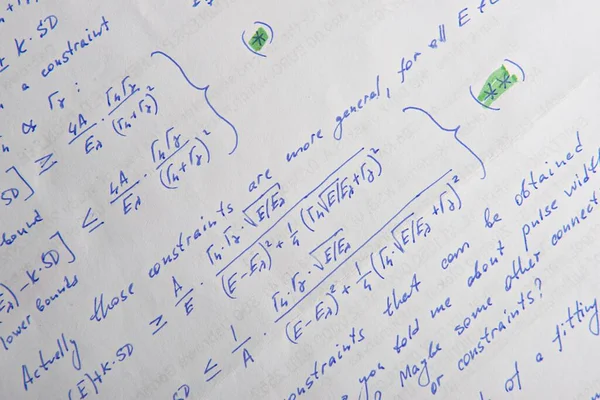 + K·SD
a constraint
∝ Γγ :
SD] ≥ 4A/Eλ · ΓnΓγ/(Γn+Γγ)² } (*)
bound
Eλ) - K·SD] ≤ 4A/Eλ · ΓnΓγ/(Γn+Γγ)²
lower bounds
Actually those constraints are more general, for all E
(E)+K·SD ≥ A/E · Γn·Γγ·√E/Eλ / ((E-Eλ)² + 1/4 (Γn√E/Eλ+Γγ)²) } (**)
SD ≤ 1/A · Γn·Γγ·√E/Eλ / ((E-Eλ)² + 1/4 (Γn·√E/Eλ+Γγ)²)
constraints that can be obtained
you told me about pulse width
? Maybe some other connect
or constraints?
of a fitting